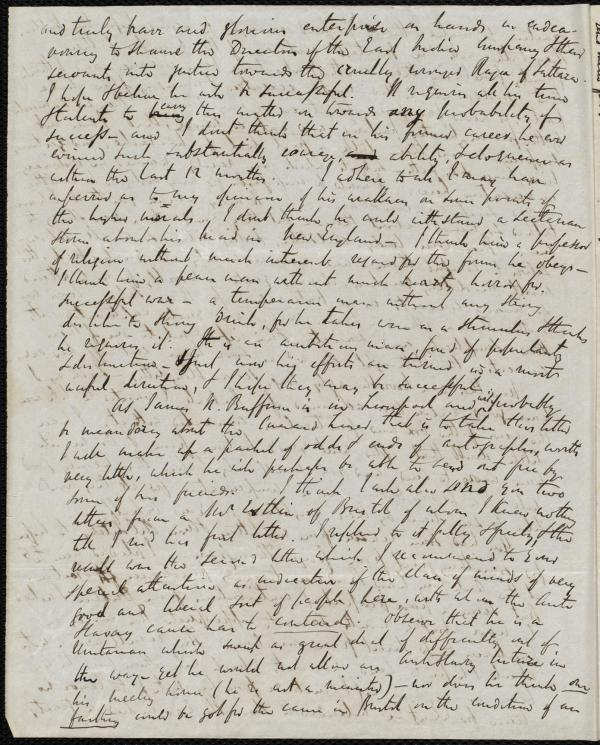 and truly brave and glorious enterprise on hands in endea-
vouring to shame the Directors of the East India Company & their
servants into justice towards the cruelly wronged Raja of Sattara.
I hope & believe he will be successful. It requires all his time
& talents to carry this matter on towards any probability of
success - and I don't think that in his former career he ever
evinced such substantially courage, ability, & eloquence as
within the last 12 months. I adhere to all I may have
expressed as to my opinion of his weakness on some points of
the higher morals. I don't think he could withstand a Sectarian
storm about his head in New England - I think him a professor
of religion without much inherent regard for the forms he obeys -
I think him a peace man without much hearty horror for
successful war - a temperance man without any strong
dislike to strong drink, for he takes wine as a stimulus & thinks
he requires it. He is an ambitious man fond of popularity
& distinction - Just now his efforts are turned in a most
useful direction, & I hope they may be successful.
As James N. Buffum is in Liverpool and will probably
be meandering about the Cunard that is to take this letter
I will make up a packet of odds & ends of autographs, worth
very little, which he will perhaps be able to send out free by
some of his friends. I think I will also send you two
letters from a Mr of Bristol of whom I knew nothing
till I had his first letter. I replied to it fully & freely & the
result was the second letter which I recommend to your
special attention as indicative of the class of minds of very
good and liberal sort of people here, with whom the Anti
Slavery cause has to contend. Observe that he is a
Unitarian which sweeps a great deal of difficulty out of
the way - yet he would not allow an Antislavery lecture in
his meeting house (he is not a minister) - nor does he think one
farthing could be got for the cause in Bristol on the condition of an